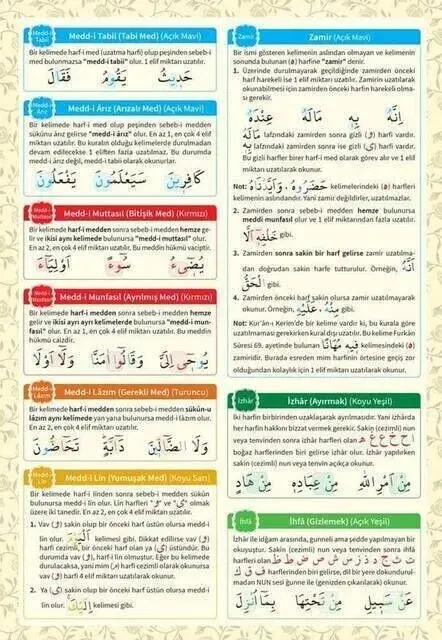 Medd-i Tabii
Medd-i Tabii (Tabi Med) (Açık Mavi)
Bir kelimede harf-i med (uzatma harfi) olup peşinden sebeb-i
med bulunmazsa "medd-i tabii" olur. 1 elif miktarı uzatılır.
حَدِيثُ يَقُومُ فَقَالَ
Medd-i Ârız
Medd-i Ârız (Arızalı Med) (Açık Mavi)
Bir kelimede harf-i med olup peşinden sebeb-i medden
sükûnu ârız gelirse "medd-i ârız" olur. En az 1, en çok 4 elif
miktarı uzatılır. Bu kuralın olduğu kelimelerde durulmadan
devam edilecekse 1 eliften fazla uzatılmaz. Bu durumda
medd-i ârız değil, medd-i tabii olarak okunurlar.
كَافِرِينَ سَيَعْلَمُونَ يَفْعَلُونَ
Medd-i Muttasıl
Medd-i Muttasıl (Bitişik Med) (Kırmızı)
Bir kelimede harf-i medden sonra sebeb-i medden hemze ge-
lir ve ikisi aynı kelimede bulunursa "medd-i muttasıl" olur.
En az 2, en çok 4 elif miktarı uzatılır. Bu meddin hükmü vaciptir.
يُضِىءُ سُوءُ اَوْلِيَاءَ
Medd-i Munfasıl
Medd-i Munfasıl (Ayrılmış Med) (Kırmızı)
Bir kelimede harf-i medden sonra sebeb-i medden hemze
gelir ve ikisi ayrı ayrı kelimelerde bulunursa "medd-i mun-
fasıl" olur. En az 2, en çok 4 elif miktarı uzatılır. Bu meddin
hükmü caizdir.
يُوحَى اِلَىَّ وَقَالُوا اٰمَنَّا وَلَا اَوْلَادُ
Medd-i Lâzım
Medd-i Lâzım (Gerekli Med) (Turuncu)
Bir kelimede harf-i medden sonra sebeb-i medden sükûn-u
lâzım aynı kelimede yan yana bulunursa medd-i lâzım olur.
En az 2, en çok 4 elif miktarı uzatılır.
وَلَا الضَّالِّينَ دَابَّةٍ تَحَاضُّونَ
Medd-i Lin
Medd-i Lin (Yumuşak Med) (Koyu Sarı)
Bir kelimede harf-i linden sonra sebeb-i medden sükûn
bulunursa medd-i lin olur. Harf-i lin harfleri "و" ve "ي" olmak
üzere iki tanedir. En az 2, en çok 4 elif miktarı uzatılır.
1. Vav (و) sakin olup bir önceki harf üstün olursa medd-i
lin olur. kelimesi gibi. Dikkat edilirse vav (و)
harfi cezimli, bir önceki harf olan ya (ي) üstündür. Bu
durumda vav (و), harf-i lin olmuştur. Eğer bu kelimede
durulacaksa, yani mim (م) harfi cezimli olarak okunursa
vav (و) harfi 4 elif miktarı uzatılarak okunur.
2. Ya (ي) sakin olup bir önceki harf üstün olursa medd-i
lin olur. اِلَيْكَ kelimesi gibi.
Zamir
Zamir (Açık Mavi)
Bir ismi gösteren kelimenin aslından olmayan ve kelimenin
sonunda bulunan (ه) harfine "zamir" denir.
1. Üzerinde durulmayarak geçildiğinde zamirden önceki
harf harekeli ise 1 elif miktarı uzatılır. Zamirin uzatılarak
okunabilmesi için zamirden önceki harfin harekeli olma-
sı gerekir.
اِنَّهُ بِهِ مَالَهُ عِنْدَهُ
مَالَهُ lafzındaki zamirden sonra gizli (و) harfi vardır.
بِهِ lafzındaki zamirden sonra ise gizli (ي) harfi vardır.
Bu gizli harfler birer harf-i med olarak görev alır ve 1 elif
miktarı uzatılarak okunur.
Not: حَضَرُوهُ، وَاَيَّدْنَاهُ kelimelerindeki (ه) harfleri
kelimenin aslındandır. Yani zamir değildirler, uzatılmazlar.
2. Zamirden sonra sebeb-i medden hemze bulunursa
meddi munfasıl olur ve 1 elif miktarından fazla uzatılır.
خَلْفَهُ اِلَّا gibi.
3. Zamirden sonra sakin bir harf gelirse zamir uzatılma-
dan doğrudan sakin harfe tutturulur. Örneğin, اَنَّهُ
الْحَقُّ gibi.
4. Zamirden önceki harf sakin olursa zamir uzatılmayarak
okunur. Örneğin, مِنْهُ، عَلَيْهِ gibi.
Not: Kur'ân-ı Kerim'de bir kelime vardır ki, bu kurala göre
uzatılmaması gerekirken kural dışı uzatılır. Bu kelime Furkân
Sûresi 69. ayetinde bulunan فِيهِ مُهَانًا kelimesindeki (ه)
zamiridir. Burada esreden mim harfinin örtesine geçiş zor
olduğundan kolaylık için 1 elif miktarı uzatılarak okunur.
İzhâr
İzhâr (Ayırmak) (Koyu Yeşil)
İki harfin birbirinden uzaklaşarak ayrılmasıdır. Yani izhârda
her harfin hakkını bizzat vermek gerekir. Sakin (cezimli) nun
veya tenvinden sonra izhâr harfleri olan ا ح خ ع غ ه
boğaz harflerinden biri gelirse izhâr olur. İzhâr yapılırken
sakin (cezimli) nun veya tenvin açıkça okunur.
مِنْ اَمْرِ اللّٰهِ مِنْ عِبَادِهِ مِنْ هَادٍ
İhfâ
İhfâ (Gizlemek) (Açık Yeşil)
İzhâr ile idğam arasında, gunneli ama şedde yapılmayan bir
okuyuştur. Sakin (cezimli) nun veya tenvinden sonra ihfâ
harfleri olan ت ث ج د ذ ز س ش ص ض ط ظ
ف ق ك harflerinden biri gelirse, dil bir yere dokundurul-
madan NUN sesi ğunne ile (genizden çıkarılarak) okunur.
عَنْ سَبِيلِ مِنْ تَحْتِهَا بِمَا اُنْزِلَ